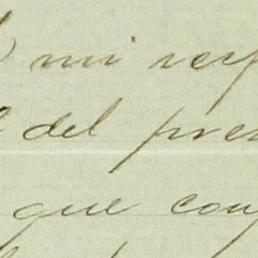 mi resp
del pres
que con